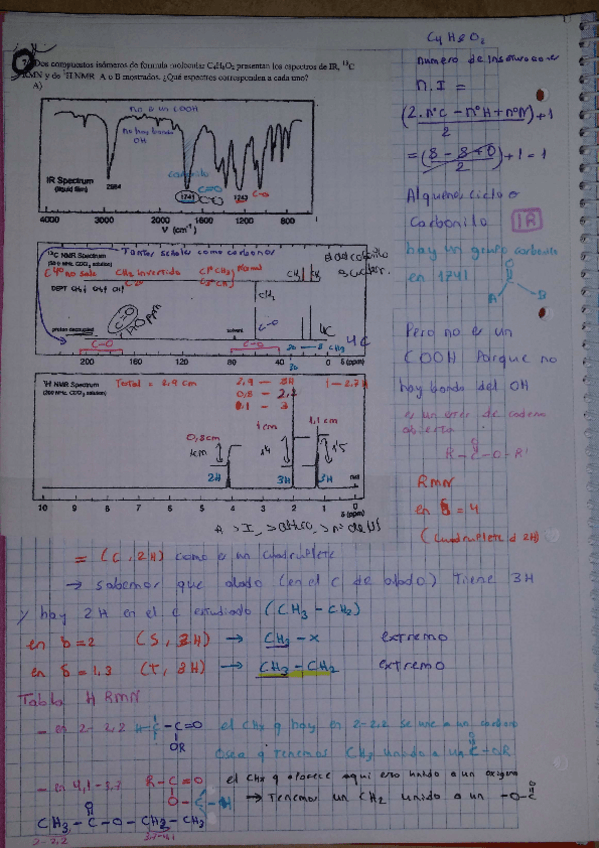 C4H8O2
7) Dos compuestos isómeros de fórmula molecular C4H8O2 presentan los espectros de IR, 13C
RMN y de 1H NMR A o B mostrados. ¿Qué espectros corresponden a cada uno?
A)
numero de insaturaciones
n.I =
(2.nºC - nºH + nºN)/2 + 1
= (8 - 8 + 0)/2 + 1 = 1
Alqueno, ciclo o
Carbonilo IR
hay un grupo carbonilo
en 1741
O
A B
Pero no es un
COOH Porque no
hay banda del OH
es un ester de cadena
abierta
O
R-C-O-R'
RMN
en δ = 4
(cuadruplete d 2H)
no es un COOH
no hay banda
OH
carbonilo
C=O
C-O
IR Spectrum
(liquid film)
2984
1741
1243
4000 3000 2000 1600 1200 800
V (cm-1)
13C NMR Spectrum
Tantas señales como carbonos
C4º no sale CH2 invertido
DEPT CH3 CH2 CH
CH3
CH2
C-O
C=O
proton decoupled
solvent
4C
C=O
C-O
200 160 120 80 40 0 δ (ppm)
1H NMR Spectrum
(200 MHz, CDCl3 solution)
Total = 2,9 cm
2,9 - 8H
1 - 2,7H
0,8cm
1cm
1,1cm
2H
3H
3H
TMS
10 9 8 7 6 5 4 3 2 1 0
δ (ppm)
= (C, 2H) como es un cuadruplete
→ sabemos que alado (en el C de alado) tiene 3H
y hay 2H en el C estudiado (CH3 - CH2)
en δ=2 (S, 3H) → CH3 - x extremo
en δ=1,3 (T, 3H) → CH3 - CH2 extremo
Tabla H RMN
- en 2-2,2 H-C-C=O el CHx q hay en 2-2,2 se une a un carbono
OR
osea q tenemos CH3 unido a un C-OR
- en 4,1-3,7 R-C=O el CHx q aparece aqui esta unido a un oxigeno
O-C-H → Tenemos un CH2 unido a un -O-C=O
O
CH3 - C - O - CH2 - CH3
2-2,2 3,7-4,1